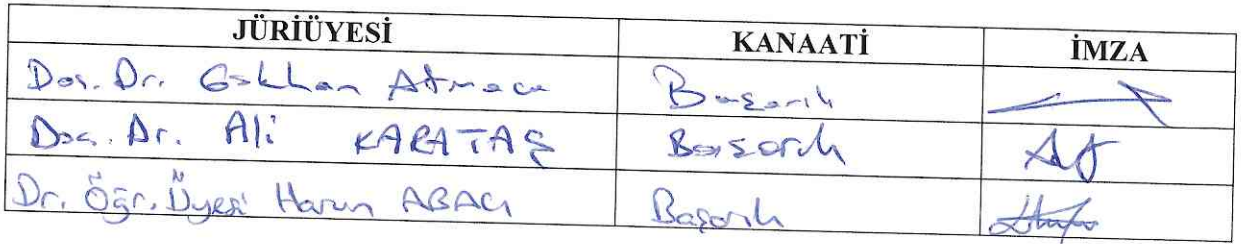 JÜRİÜYESİ KANAATİ İMZA
Doç. Dr. Gökhan Atmaca Başarılı
Doç. Dr. Ali KARATAŞ Başarılı
Dr. Öğr. Üyesi Harun ABACI Başarılı